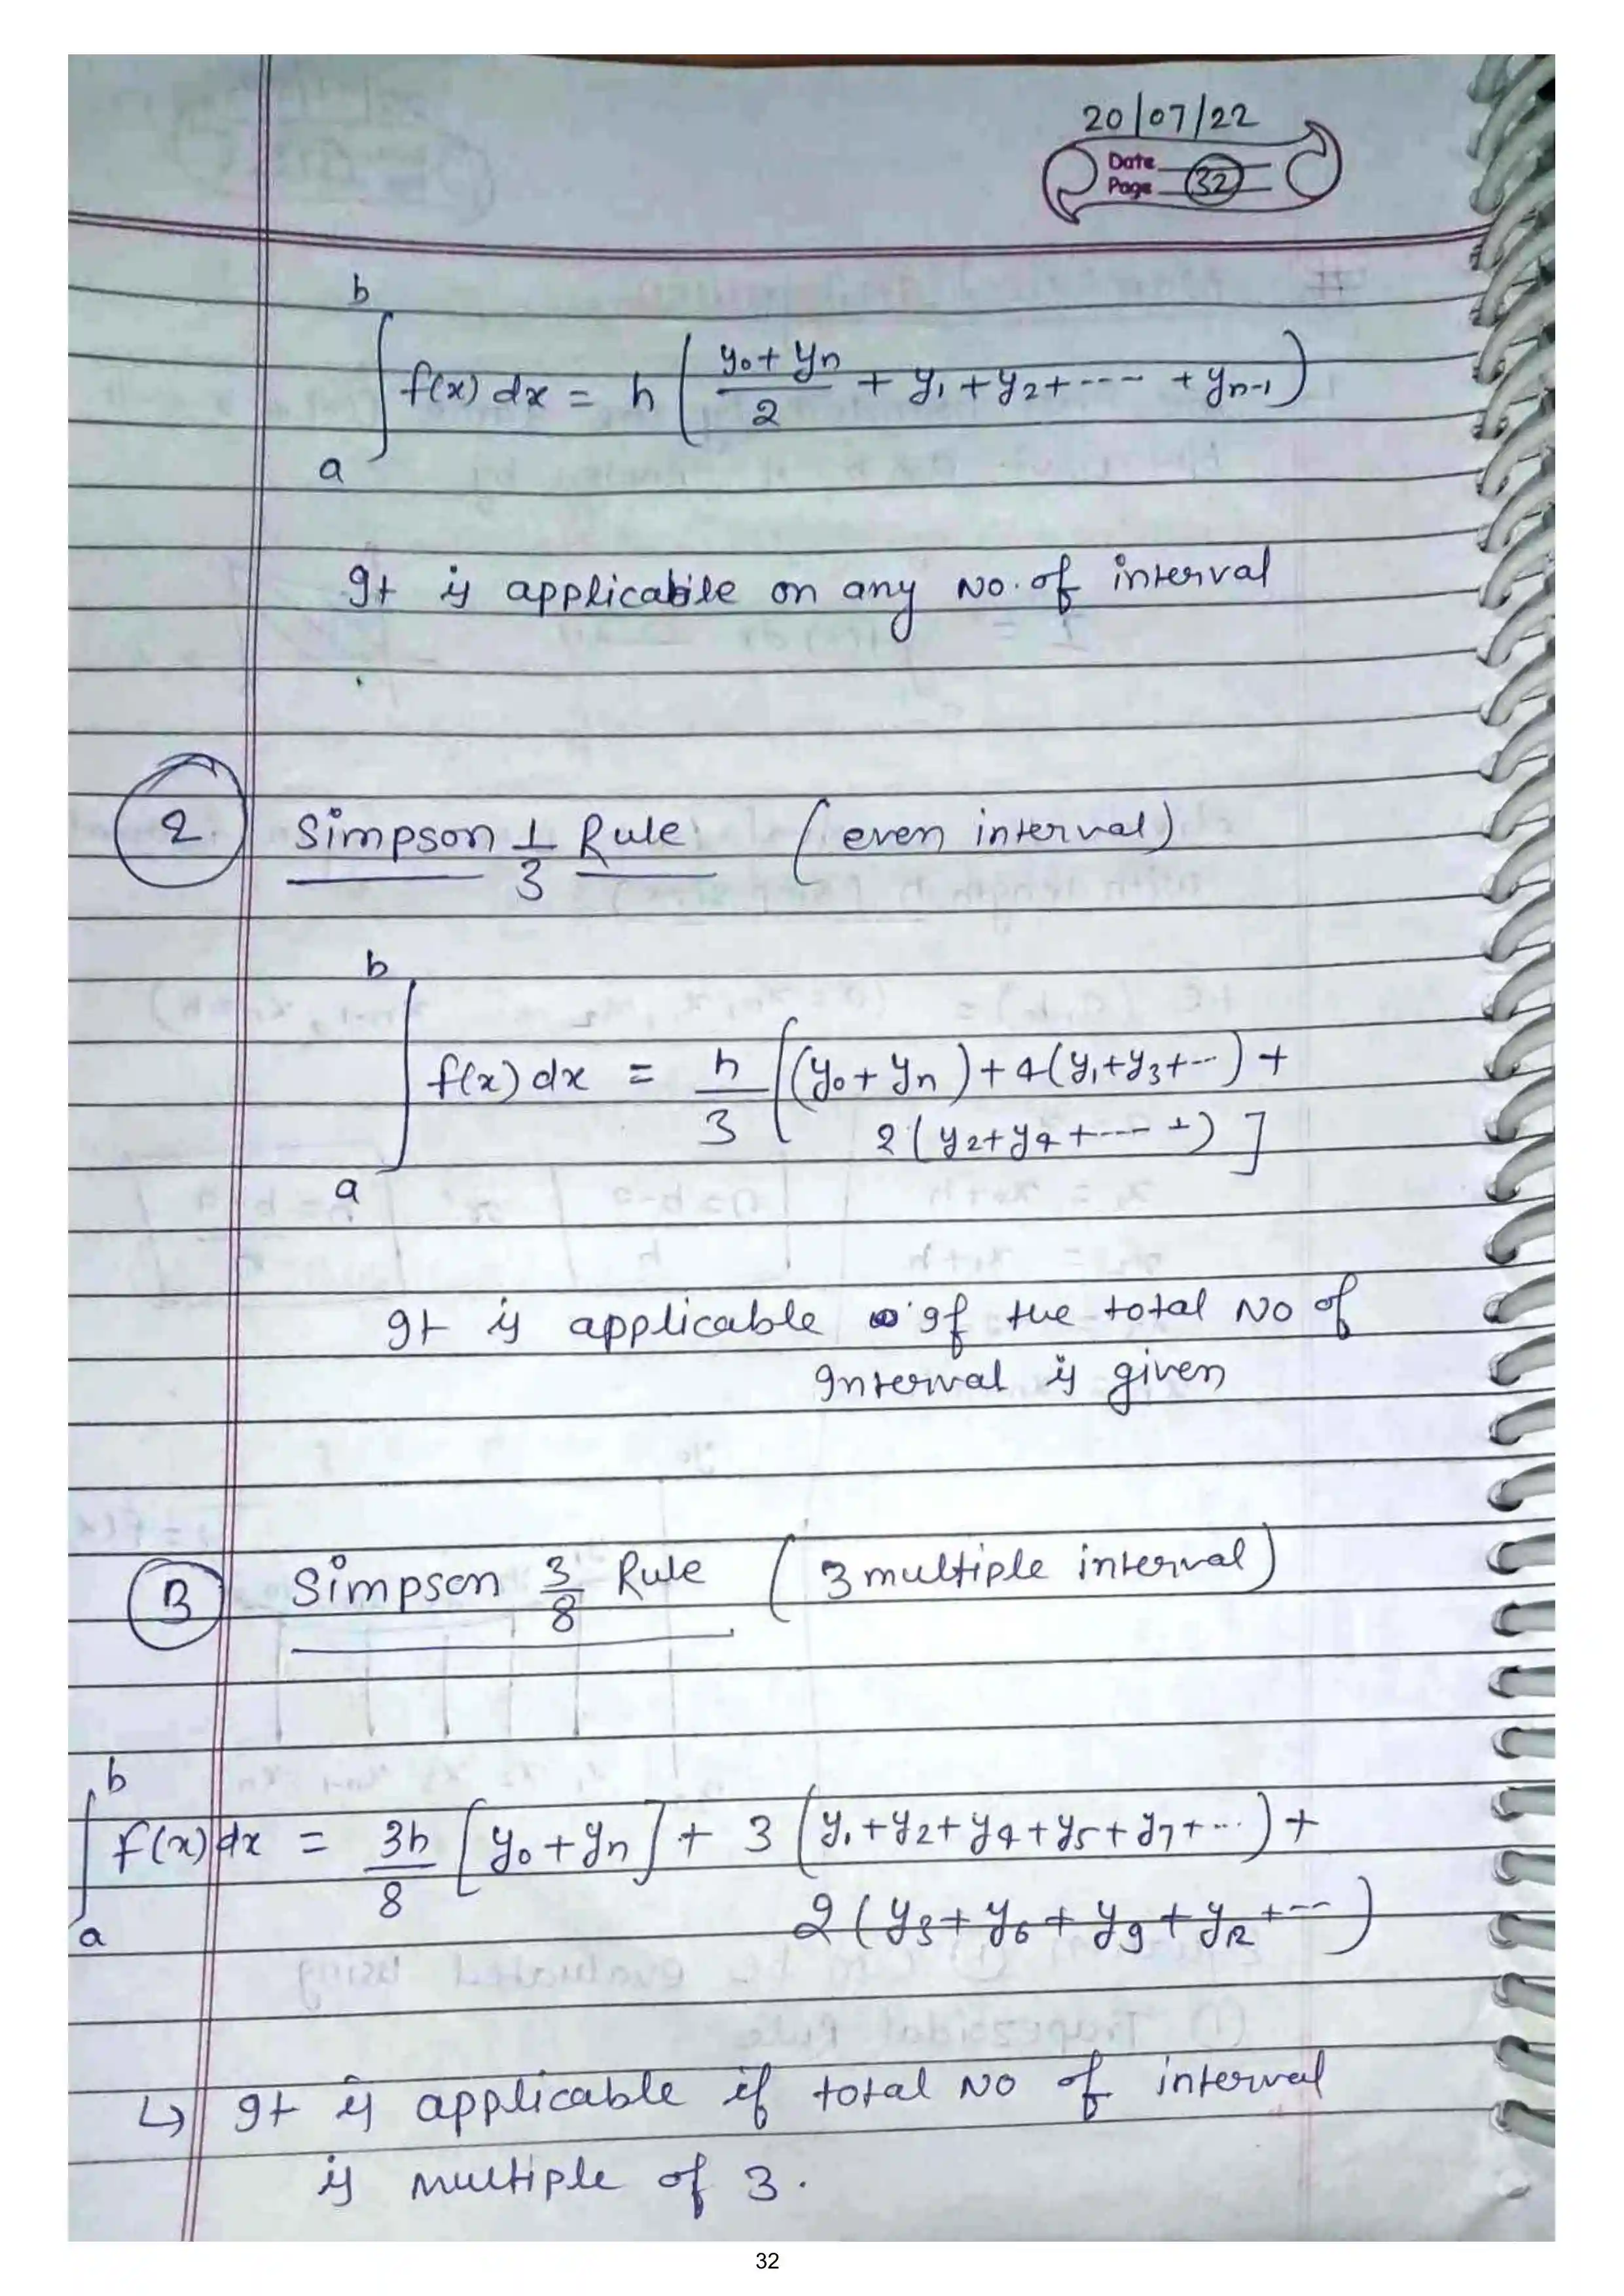 20/07/22
Date
Page 32
b
∫ f(x) dx = h ( y₀ + yₙ / 2 + y₁ + y₂ + ---- + yₙ₋₁ )
a
It is applicabile on any No. of interval
2. Simpson 1/3 Rule (even interval)
b
∫ f(x) dx = h/3 [ (y₀ + yₙ) + 4(y₁ + y₃ + ---) +
2 ( y₂ + y₄ + ---- + ) ]
a
It is applicable If the total No of
Interval is given
3 Simpson 3/8 Rule ( 3 multiple interval)
b
∫ f(x) dx = 3h/8 [ y₀ + yₙ ] + 3 ( y₁ + y₂ + y₄ + y₅ + y₇ + ... ) +
2 ( y₃ + y₆ + y₉ + y₁₂ + --- )
a
↳ It is applicable if total No of interval
is multiple of 3.
32